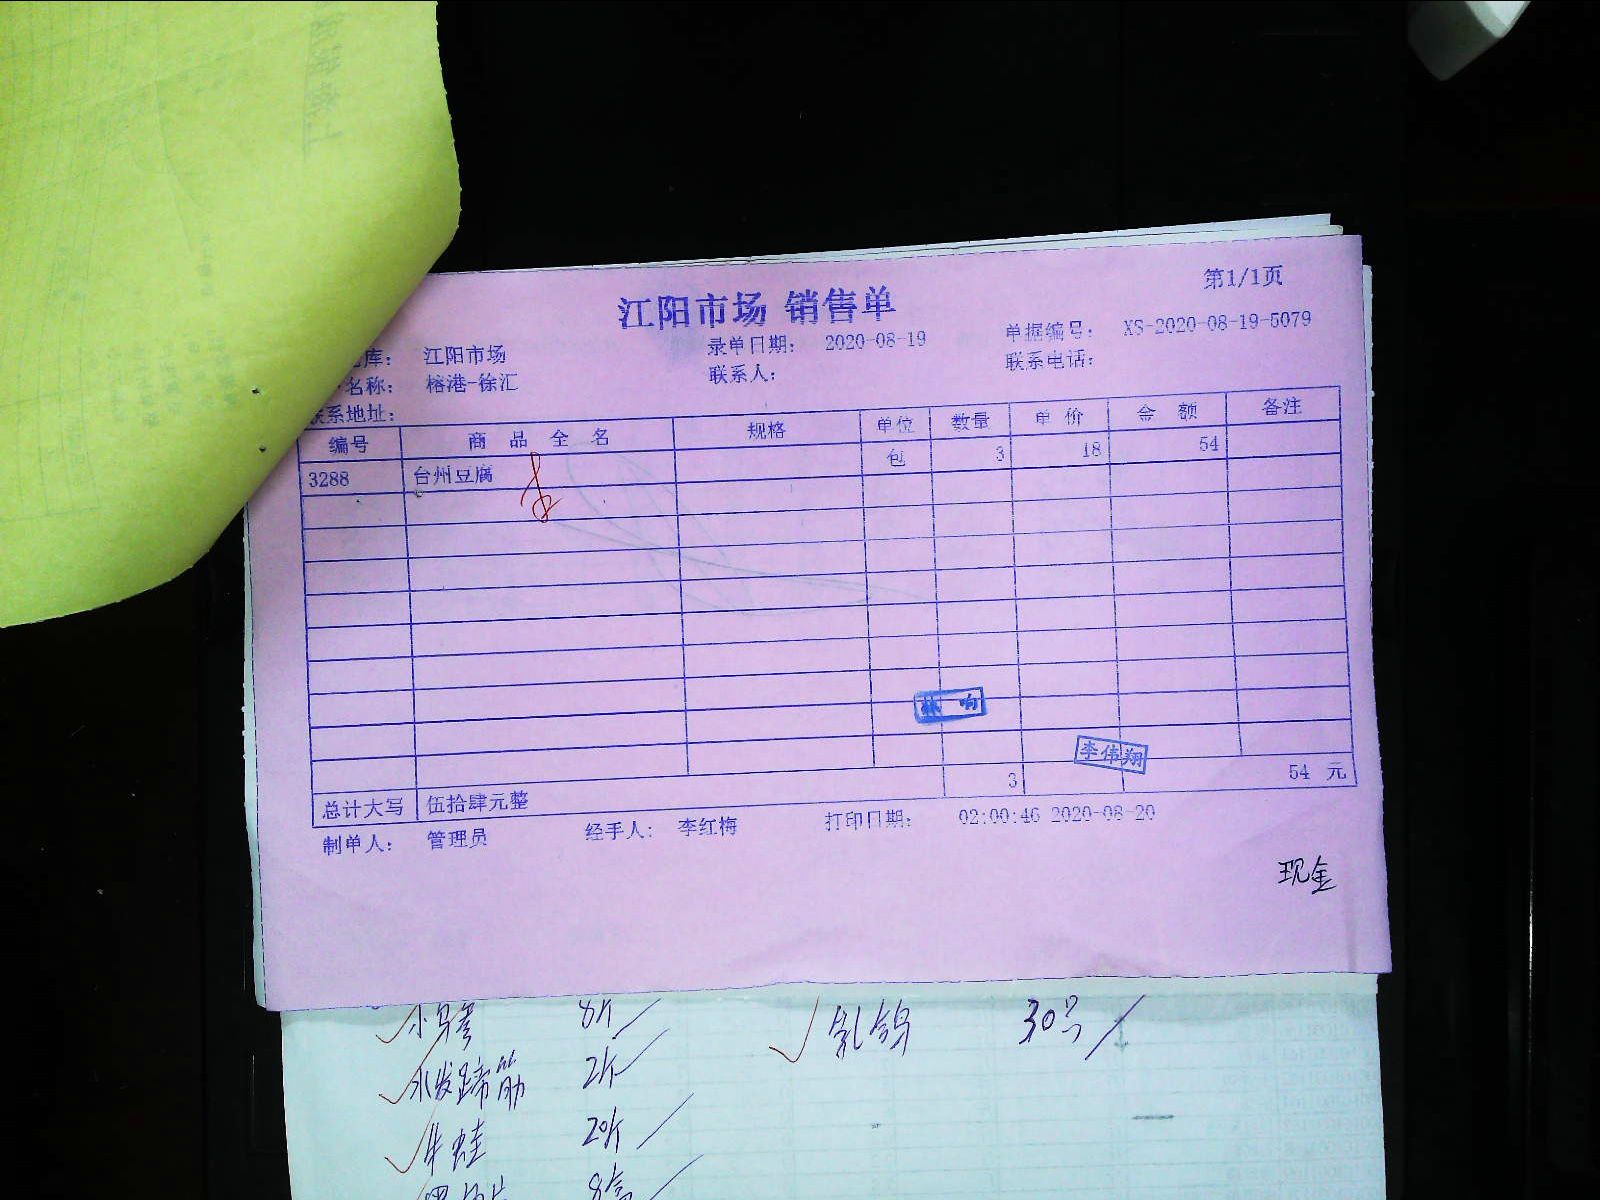 第1/1页
江阳市场 销售单
库： 江阳市场 录单日期： 2020-08-19 单据编号： XS-2020-08-19-5079
名称： 榕港-徐汇 联系人： 联系电话：
联系地址：
编号 商品全名 规格 单位 数量 单价 金额 备注
3288 台州豆腐 包 3 18 54
林响
李伟翔
3 54 元
总计大写 伍拾肆元整
制单人： 管理员 经手人： 李红梅 打印日期： 02:00:46 2020-08-20
现金
8斤 乳鸽 30只
水发蹄筋 2斤
牛蛙 20斤
8盒